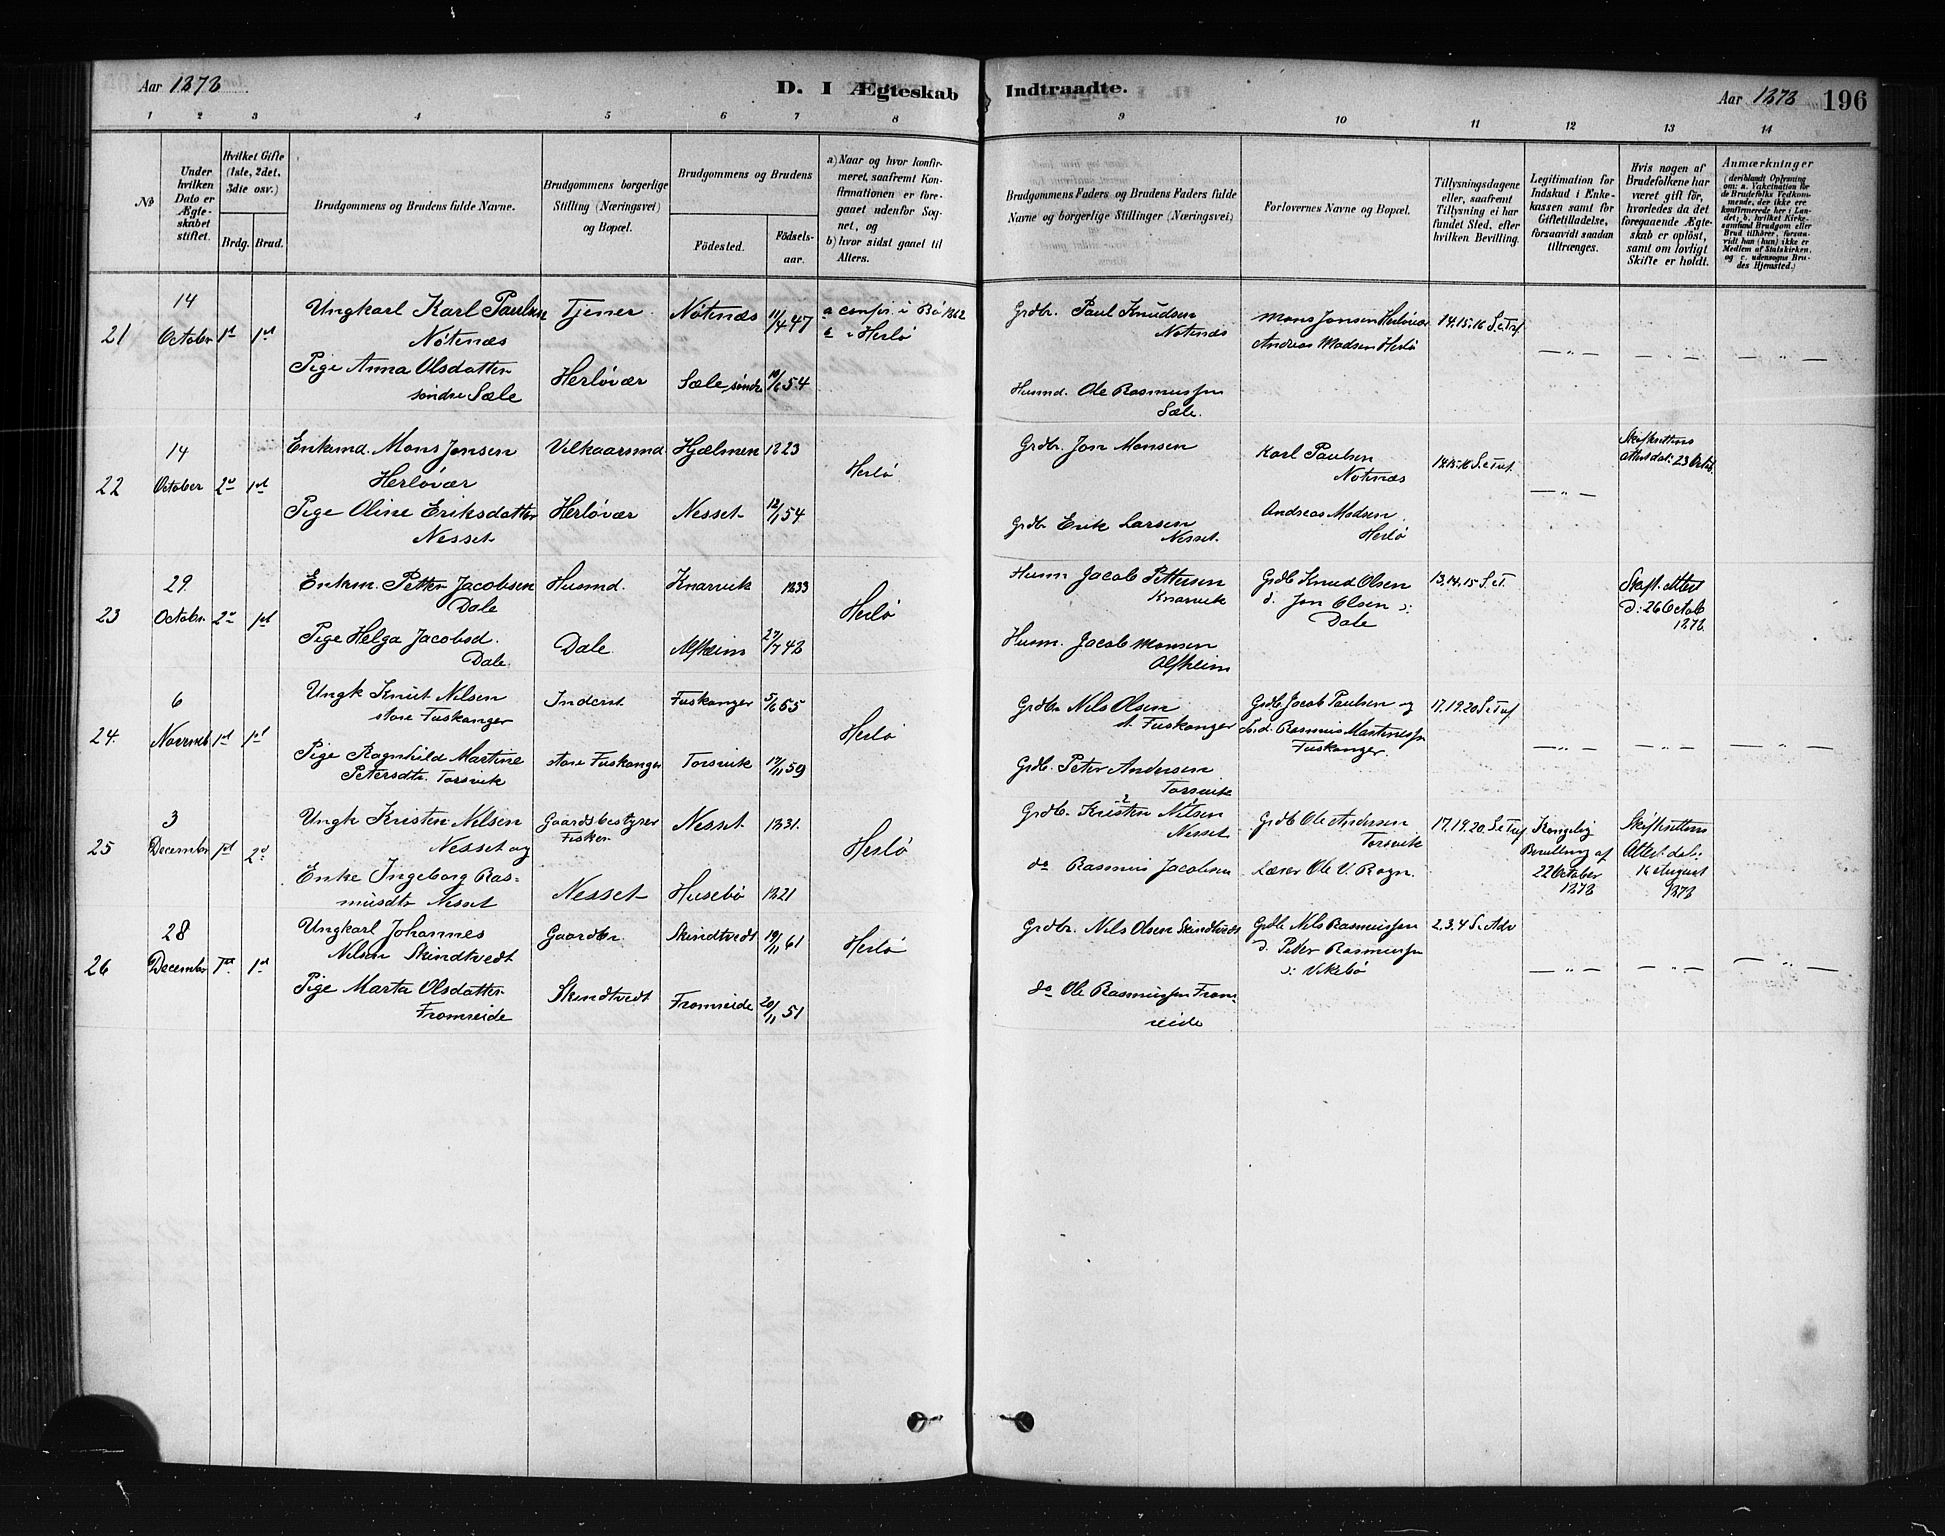 Aar 1878
D. I Ægteskab Indtraadte.
Aar 1878 196
1 2 3 4 5 6 7 8 9 10 11 12 13 14
No
Under hvilken Dato er Ægteskabet stiftet.
Hvilket Gifte (1ste, 2det, 3die osv.)
Brdg. Brud.
Brudgommens og Brudens fulde Navne.
Brudgommens borgerlige Stilling (Næringsvei) og Bopæl.
Brudgommens og Brudens
Födested.
Födselsaar.
a) Naar og hvor konfirmeret, saafremt Konfirmationen er foregaaet udenfor Sognet, og
b) hvor sidst gaaet til Alters.
Brudgommens Faders og Brudens Faders fulde Navne og borgerlige Stillinger (Næringsvei)
Forlovernes Navne og Bopæl.
Tillysningsdagene eller, saafremt Tillysning ei har fundet Sted, efter hvilken Bevilling.
Legitimation for Indskud i Enkekassen samt for Giftetilladelse, forsaavidt saadan tiltrænges.
Hvis nogen af Brudefolkene har været gift før, hvorledes da det foregaaende Ægteskab er opløst, samt om lovligt Skifte er holdt.
Anmærkninger
(deriblandt Oplysning om: a. Vakcination for de Brudefolks Vedkommende, der ikke ere konfirmerede her i Landet; b. hvilket Kirkesamfund Brudgom eller Brud tilhører, forsaavidt han (hun) ikke er Medlem af Statskirken, og c. udensogns Brudes Hjemsted.)
21
14 October
1st 1st
Ungkarl Karl Paulsen
Nötenæs
Tjener
Nötenæs
11/4 47
a confir. i Bö 1862
b i Herlö
Grdbr. Paul Knudsen
Notenæs
Mons Jonsen Herlövær
Andreas Madsen Herlö
14.15.16 S.e.Tref
— " — — " — — " —
Pige Anna Olsdatter
söndre Sæle
Herlövær
Sæle söndre
10/6 54
Husmd. Ole Rasmussen
Sæle.
22
14 October
2d 1st
Enkemd. Mons Jonsen
Herlövær
Vilkaarsmd
Hjælmen
1823
Herlö
Grdbr. Jon Monsen
Karl Paulsen
Notenæs
14.15.16 S.e.Tref.
— " —
Skifterettens
attest dat: 23 Octob
Pige Oline Eriksdatter
Nesset
Herlövær
Nesset
12/1 54
Grdbr Erik Larsen
Nesset.
Andreas Madsen
Herlö
23
29. October
2d 1st
Enkem. Petter Jacobsen
Dale
Husmd.
Knarvik
1833
Herlö
Husm Jacob Pettersen
Knarvik
Grdb Knud Olsen
d. Jon Olsen d:
Dale
13.14.15 S.e.T.
Skift. attest
d: 26 Octob
1878
Pige Helga Jacobsd.
Dale.
Dale
Alfheim
27/7 48
Husm. Jacob Monsen
Alfheim
24.
6 Novemb
1st 1st
Ungk Knut Nilsen
store Fuskanger
Inderst
Fuskanger
5/6 55
Herlö
Grdbr Nils Olsen
st. Fuskanger
Grdb. Jacob Paulsen og
Ind. Rasmus Martinussen
Fuskanger.
17.19.20 S.e.Tref
— " — — " — — " —
Pige Ragnhild Martine
Petersdtr. Torsvik
store Fuskanger
Torsvik
17/11 59
Grdb. Peter Andersen
Torsvik
25
3 December
1st 2d
Ungk Kristen Nilsen
Nesset og
Gaardsbestyrer
Fisker
Nesset
1831.
Herlö
Grdbr. Kristen Nilsen
Nesset
Grdb Ole Andersen
Torsvik
17.19.20. S.e.Tref
Kongelig
Bevilling af
22 October
1878
Skifterettens
Attest dat:
16 August
1878
Enke Ingeborg Ras=
musdtr Nesset
Nesset
Husebö
1821
do Rasmus Jacobsen
Lærer Ole V. Rogn.
26
28 December
1st 1st
Ungkarl Johannes
Nilsen Skindtvedt
Gaardbr.
Skindtvedt
19/11 61
Herlö
Grdbr. Nils Olsen Skindtvedt
Grdb Nils Rasmussen
d. Peter Rasmussen
d: Vikebö
2.3.4 S. Adv
— " — — " — — " —
Pige Marta Olsdatter
Fromreide
Skindtvedt
Fromreide
20/11 51
do Ole Rasmussen From=
reide